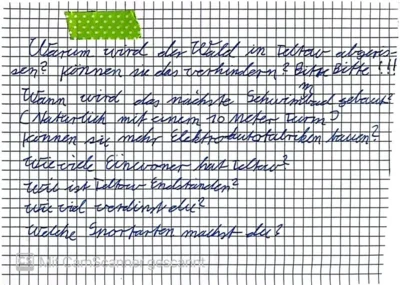 Warum wird der Wald in Teltow abgeris-
sen? können sie das verhindern? Bitte Bitte!!!
Wann wird das nächste Schwimmbad gebaut?
(Natürlich mit einem 10 Meter Turm)
können sie mehr Elektroautofabriken bauen?
Wie viele Einwoner hat Teltow?
Wie ist Teltow Endstanden?
Wie viel verdinst du?
Welche Sportarten machst du?
Mit CamScanner gescannt